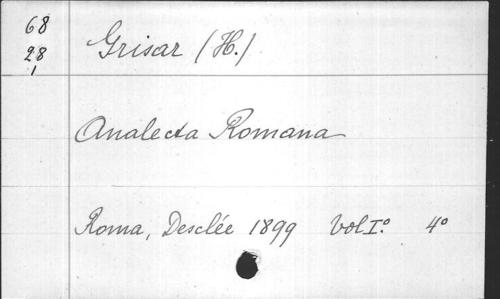 68
28
1
Grisar (H.)
Analecta Romana
Roma, Desclée 1899 Vol I.º 4º